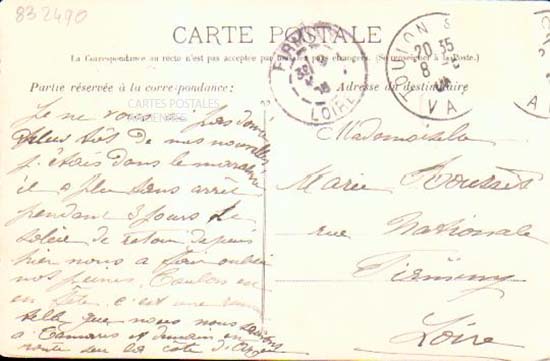 832490
CARTE POSTALE
La Correspondance au recto n'est pas acceptée par tous les pays étrangers. (Se renseigner à la Poste.)
Partie réservée à la correspondance:
Adresse du destinataire
CARTES POSTALES
ANCIENNES
FIRMINY
LOIRE
TOULON S
20 35
8
VA
Je ne vous ai pas donné
plus tôt de mes nouvelles
j'étais dans le marasme
il a plu sans arrêt
pendant 3 jours Le
soleil de retour depuis
hier nous a fait oublier
nos peines. Toulon est
en fête. c'est une
telle que nous nous
à Tamaris et demain en
route sur la côte d'Azur
Mademoiselle
Marie
rue Nationale
Firminy
Loire